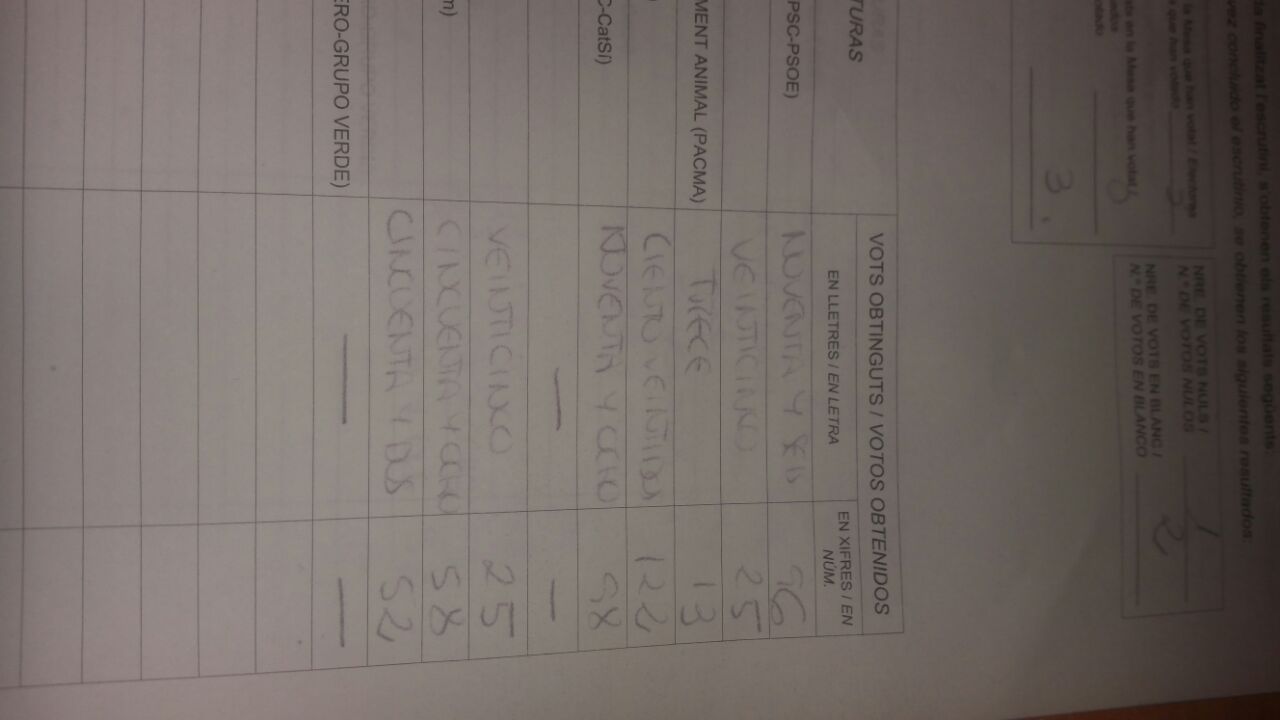 da finalitzat l'escrutini, s'obtenen els resultats següents:
vez concluido el escrutinio, se obtienen los siguientes resultados:
la Mesa que han votat / Electores
que han votado
en la Mesa que han votat /
votado
3
NRE. DE VOTS NULS /
Nº DE VOTOS NULOS 1
NRE. DE VOTS EN BLANC /
Nº DE VOTOS EN BLANCO 2
TURAS
VOTS OBTINGUTS / VOTOS OBTENIDOS
EN LLETRES / EN LETRA
EN XIFRES / EN NÚM.
PSC-PSOE) NOVENTA Y SEIS 96
VEINTICINCO 25
MENT ANIMAL (PACMA) TRECE 13
) CIENTO VEINTIDOS 122
C-CatSí) NOVENTA Y OCHO 98
— —
VEINTICINCO 25
m) CINCUENTA Y OCHO 58
CINCUENTA Y DOS 52
ERO-GRUPO VERDE) — —